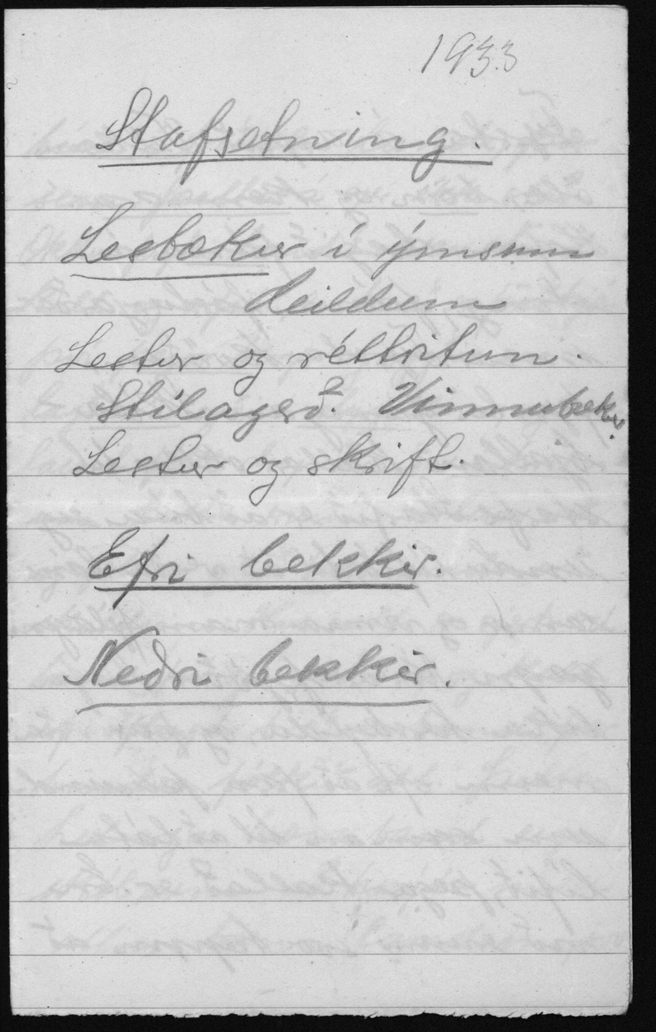 1933
Stafsetning.
Lesbækur í ýmsum
deildum
Lestur og réttritun.
Stílagerð. Vinnubækur.
Lestur og skrift.
Efri bekkir.
Neðri bekkir.